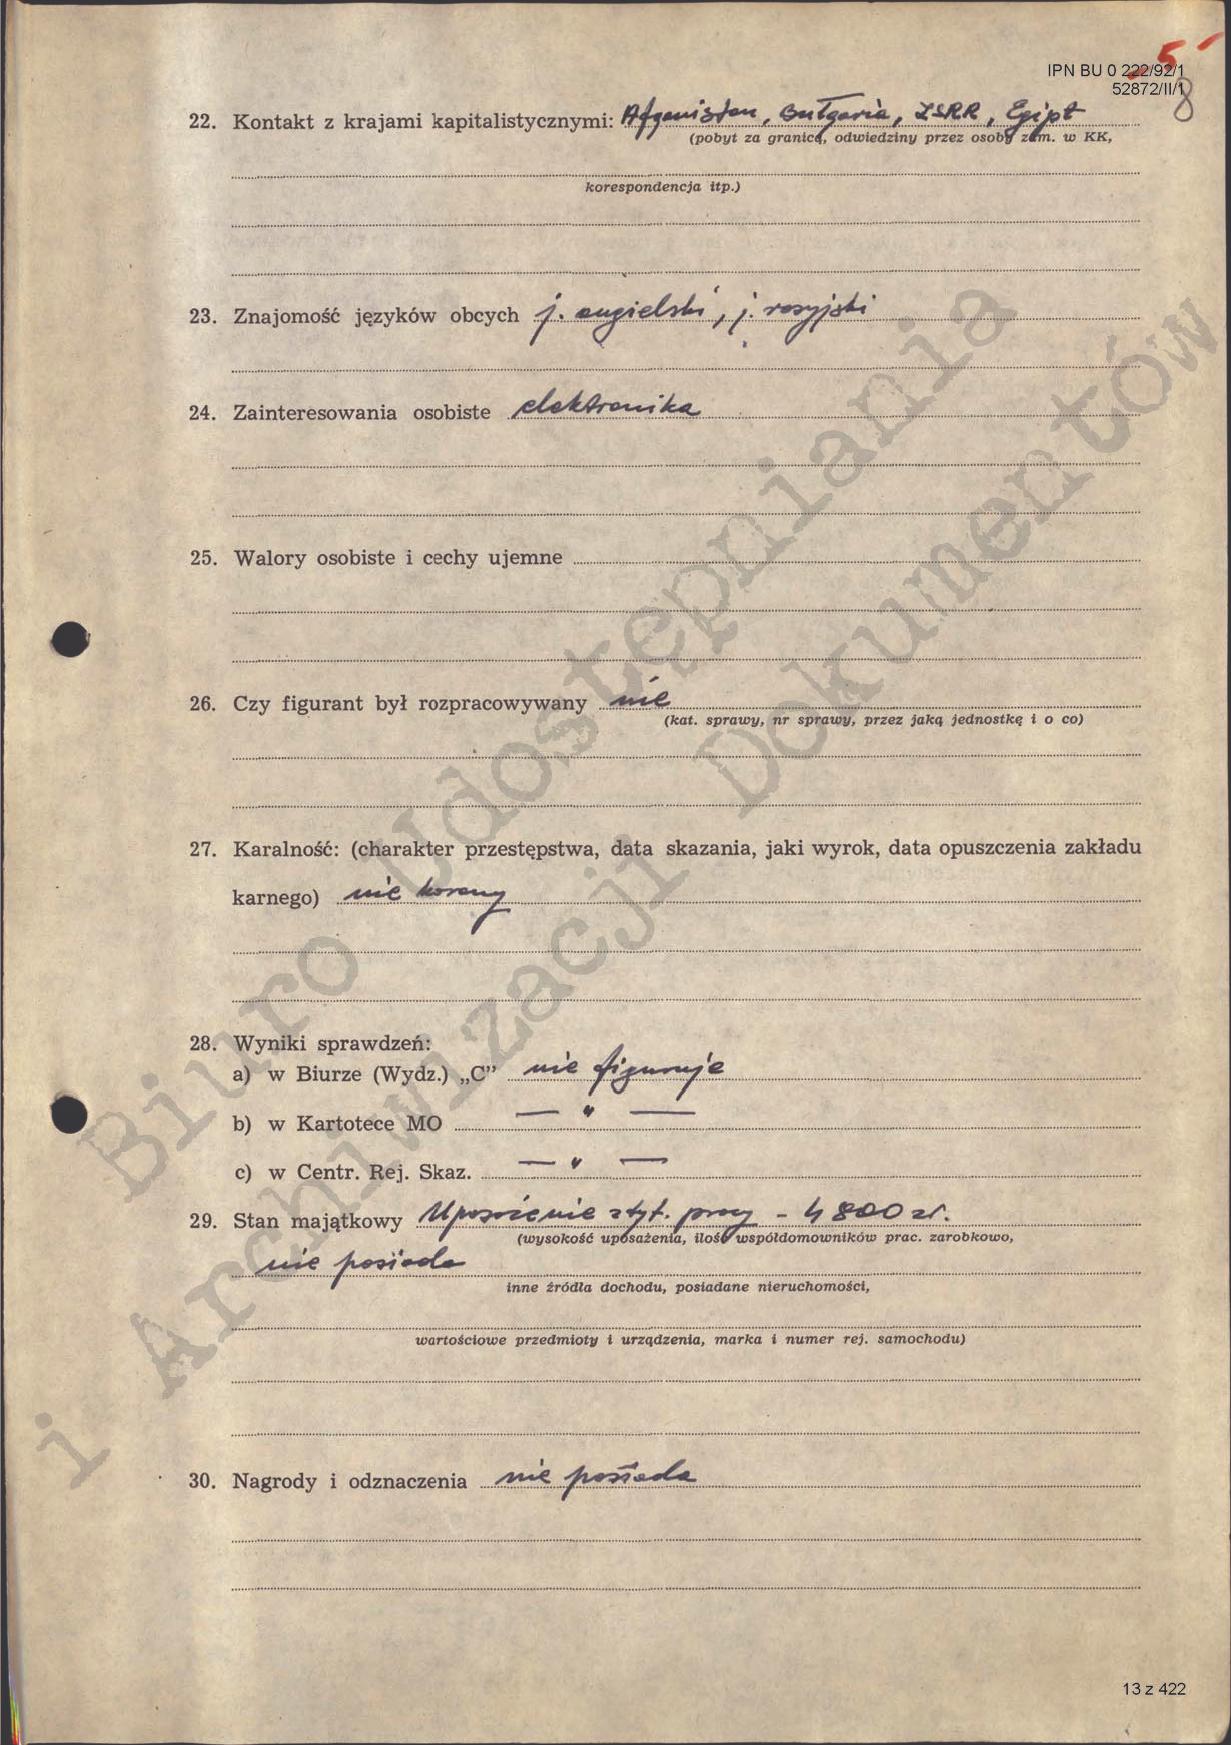 5
IPN BU 0 222/92/1
52872/II/1
8
22. Kontakt z krajami kapitalistycznymi: Afganistan, Bułgaria, ZSRR, Egipt
(pobyt za granicą, odwiedziny przez osoby zam. w KK,
korespondencja itp.)
23. Znajomość języków obcych j. angielski, j. rosyjski
24. Zainteresowania osobiste elektronika
25. Walory osobiste i cechy ujemne
26. Czy figurant był rozpracowywany nie
(kat. sprawy, nr sprawy, przez jaką jednostkę i o co)
27. Karalność: (charakter przestępstwa, data skazania, jaki wyrok, data opuszczenia zakładu
karnego) nie karany
28. Wyniki sprawdzeń:
a) w Biurze (Wydz.) „C” nie figuruje
b) w Kartotece MO — " —
c) w Centr. Rej. Skaz. — " —
29. Stan majątkowy Uposażenie z tyt. pracy - 4800 zł.
(wysokość uposażenia, ilość współdomowników prac. zarobkowo,
nie posiada
inne źródła dochodu, posiadane nieruchomości,
wartościowe przedmioty i urządzenia, marka i numer rej. samochodu)
30. Nagrody i odznaczenia nie posiada
Biuro Udostępniania
i Archiwizacji Dokumentów
13 z 422